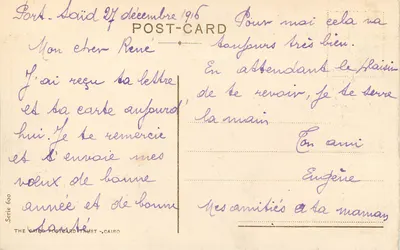 Port-Saïd 27 décembre 1916
POST-CARD
Mon cher René
J'ai reçu ta lettre
et ta carte aujourd'
hui. Je te remercie
et t'envoie mes
vœux de bonne
année et de bonne
santé
Pour moi cela va
toujours très bien.
En attendant le plaisir
de te revoir, je te serre
la main
Ton ami
Eugène
Mes amitiés à ta maman
Serie 600
THE CAIRO TRUST - CAIRO